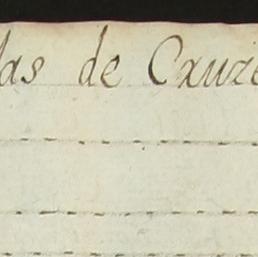 las de Cruze